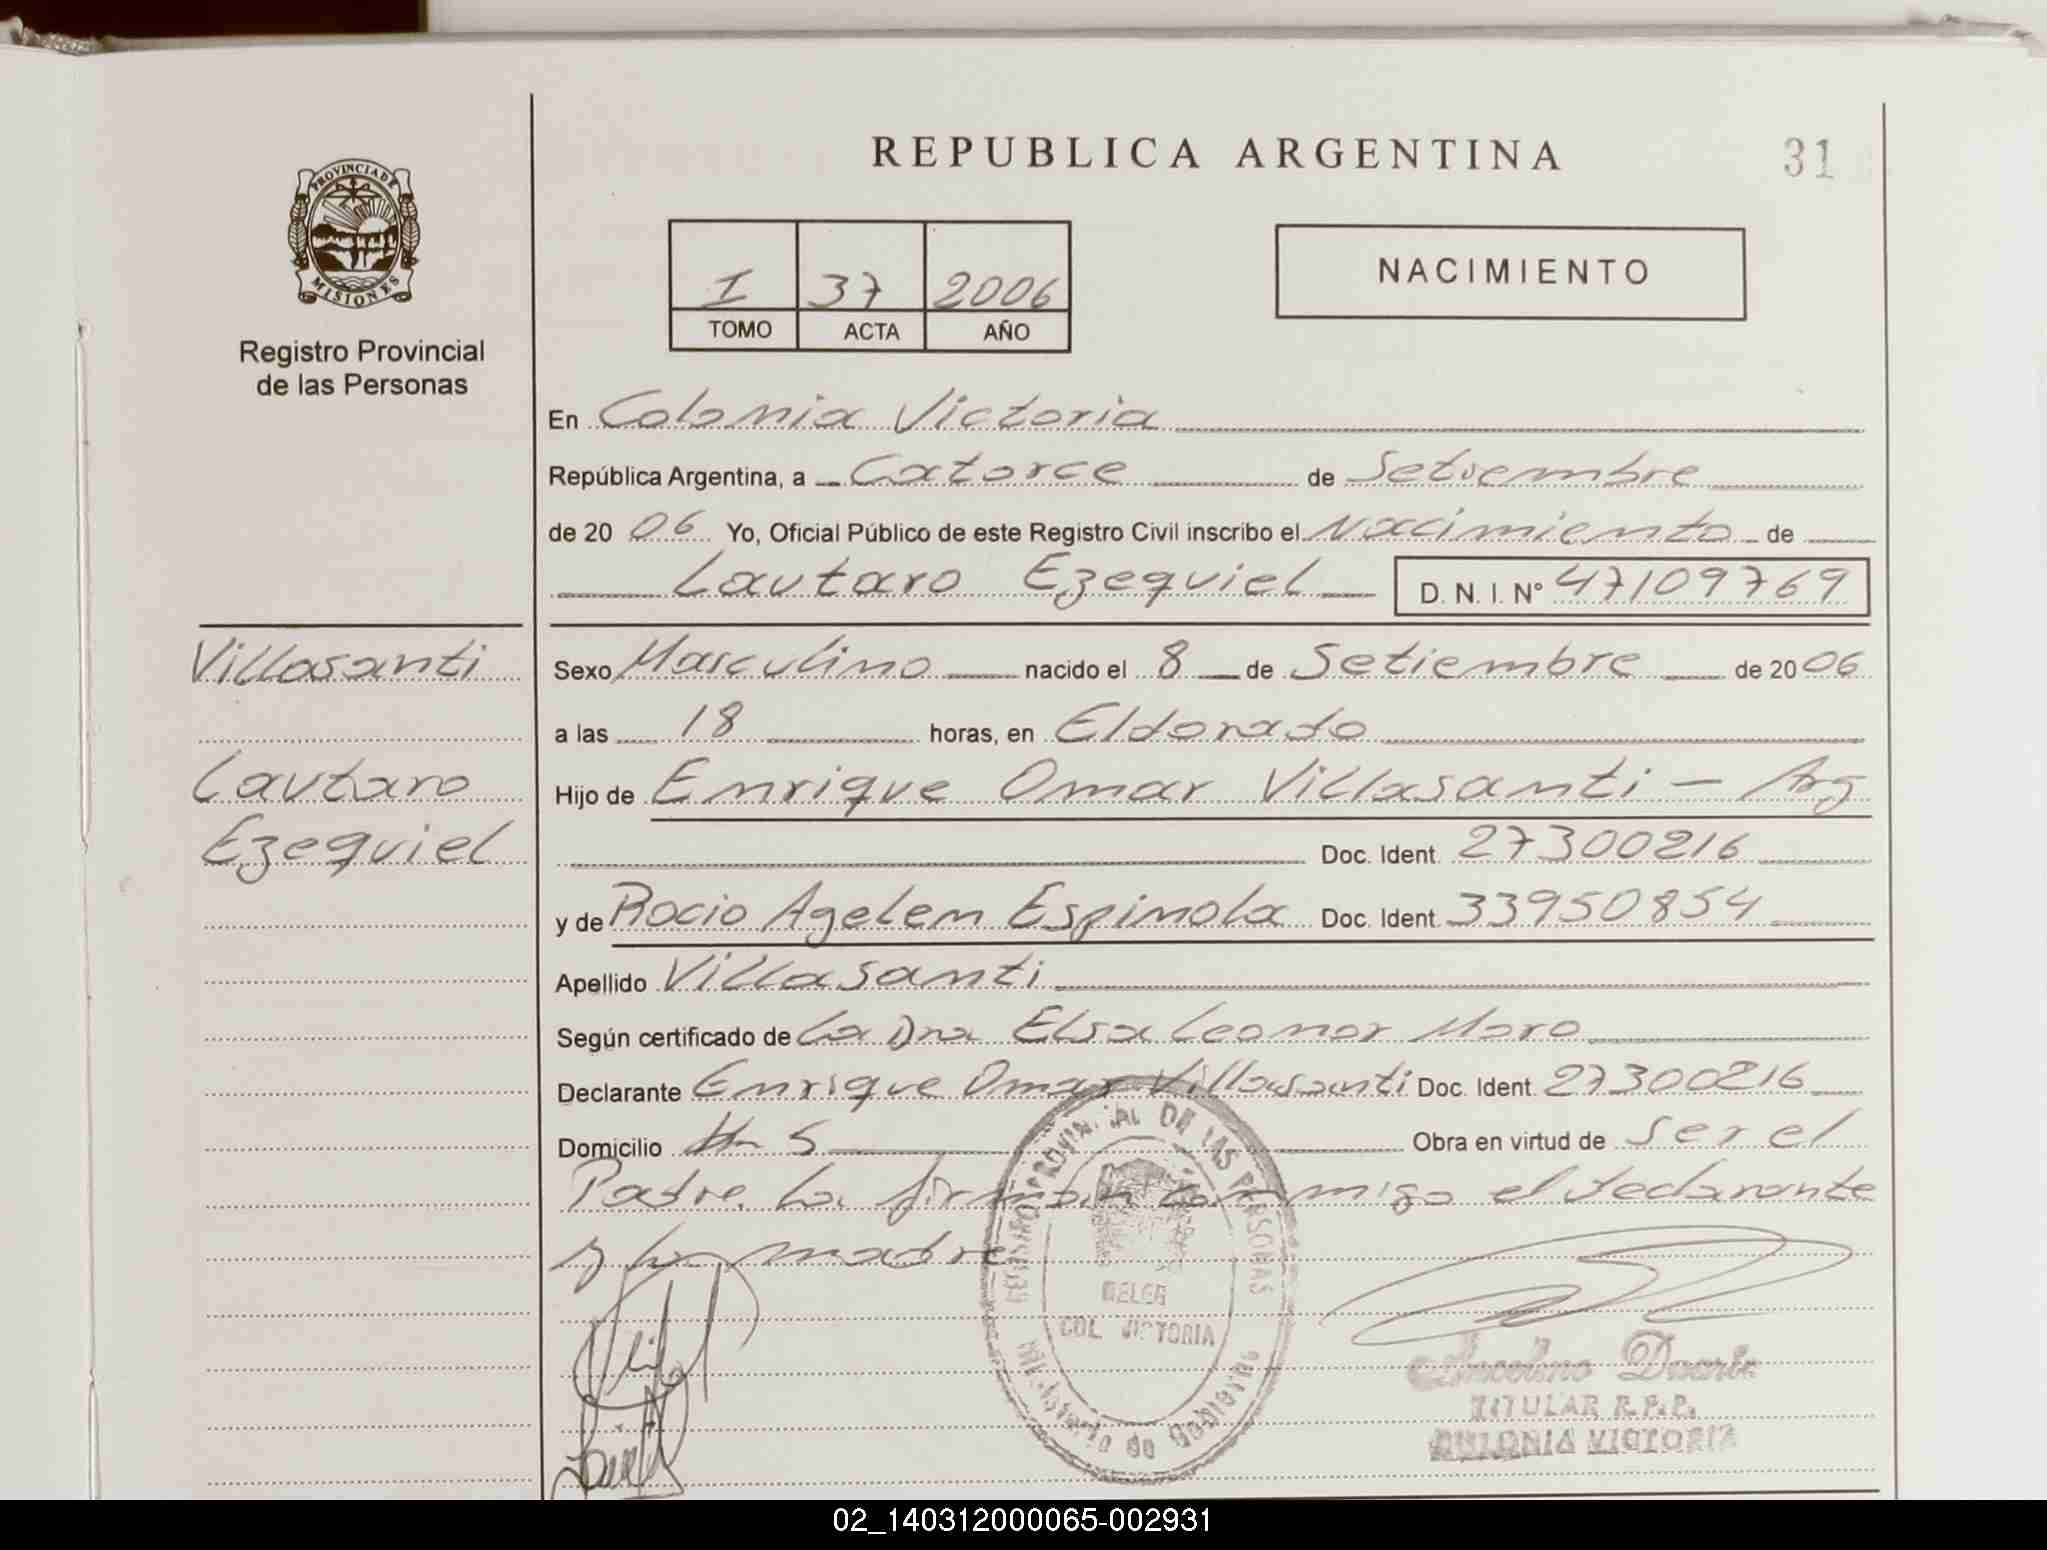 REPUBLICA ARGENTINA
31
PROVINCIA DE
MISIONES
Registro Provincial
de las Personas
I 37 2006
TOMO ACTA AÑO
NACIMIENTO
En Colonia Victoria
República Argentina, a Catorce de Setiembre
de 20 06 Yo, Oficial Público de este Registro Civil inscribo el Nacimiento de
Lautaro Ezequiel D. N. I. N° 47109769
Villasanti
Lautaro
Ezequiel
Sexo Masculino nacido el 8 de Setiembre de 20 06
a las 18 horas, en Eldorado
Hijo de Enrique Omar Villasanti - Arg
Doc. Ident. 27300216
y de Rocio Agelem Espinola Doc. Ident. 33950854
Apellido Villasanti
Según certificado de La Dra Elsa Leonor Moro
Declarante Enrique Omar Villasanti Doc. Ident. 27300216
Domicilio 5 Obra en virtud de ser el
Padre. La firman conmigo el declarante
y la madre
REGISTRO PROVINCIAL DE LAS PERSONAS
DELEG
COL. VICTORIA
Ministerio de Gobierno
Duarte
TITULAR R.P.P.
COLONIA VICTORIA
02_140312000065-002931